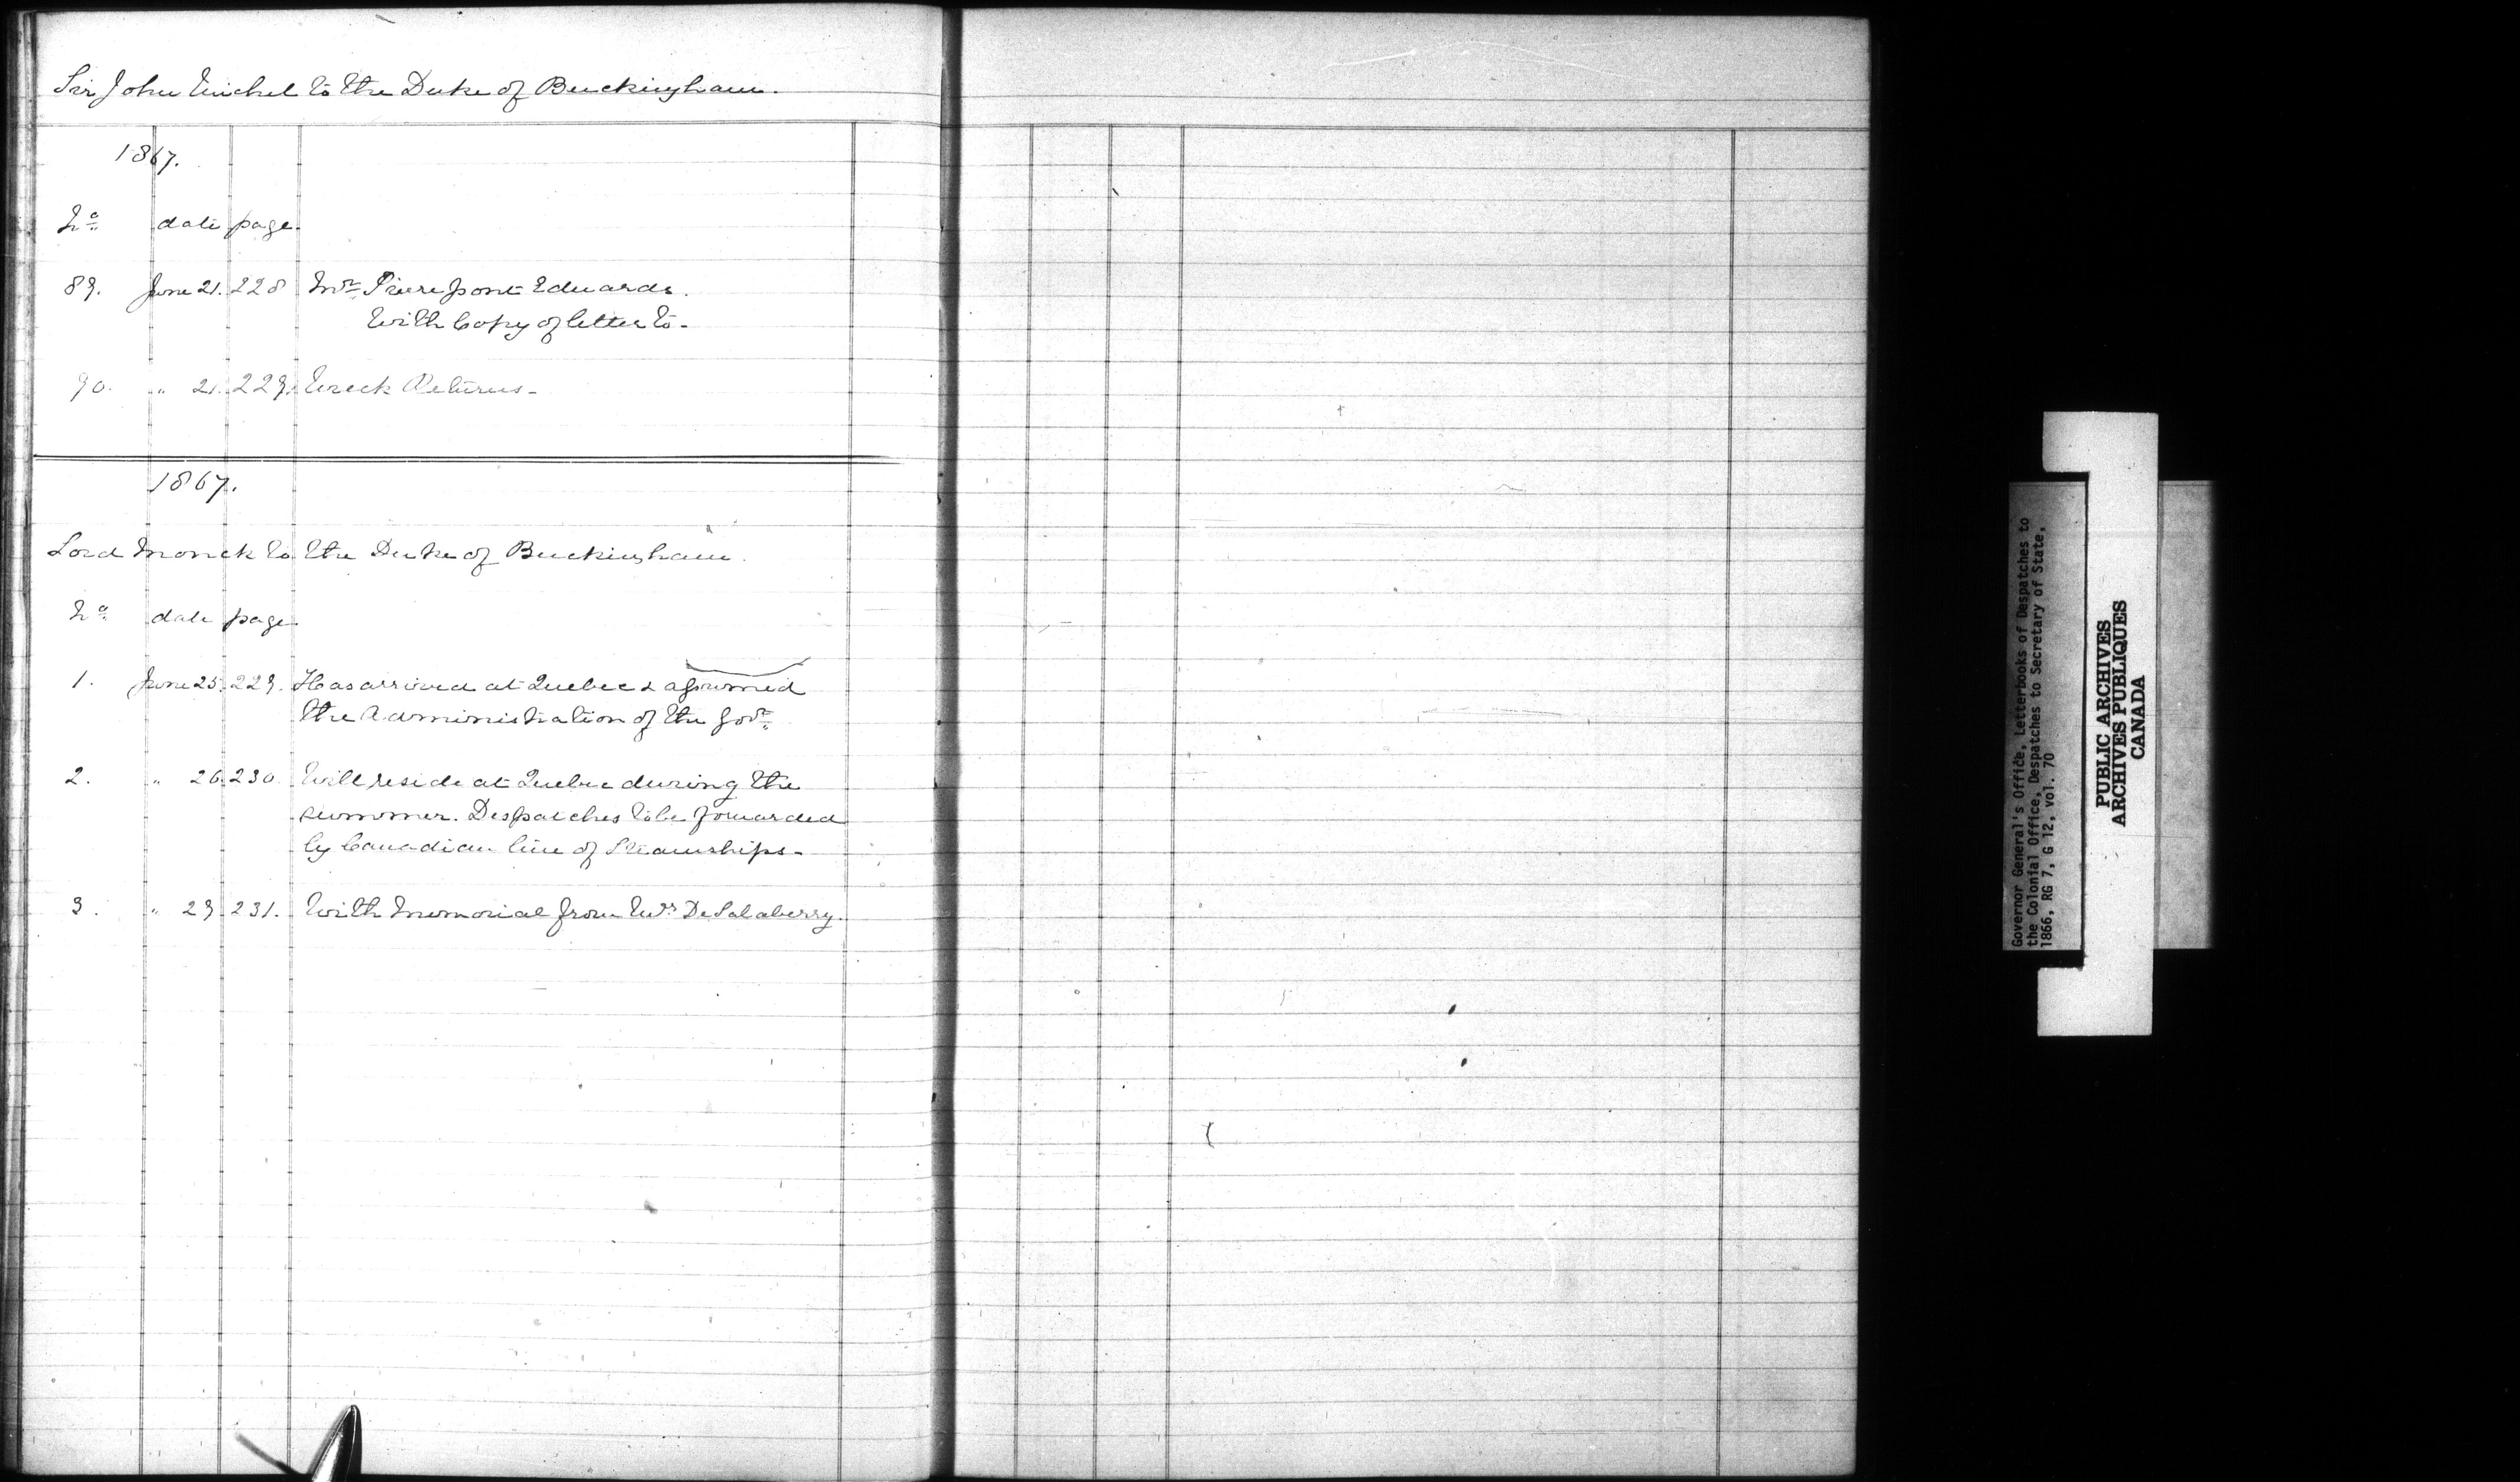 Sir John Michel to the Duke of Buckingham.
1867.
No. date page.
89. June 21. 228 Mr. Pierrepont Edwards.
With Copy of letter to-
90. " 21. 229. Wreck Returns-
1867.
Lord Monck to the Duke of Buckingham.
No. date page.
1. June 25. 229. Has arrived at Quebec & assumed
the Administration of the Govt.
2. " 26. 230. Will reside at Quebec during the
summer. Despatches to be forwarded
by Canadian line of Steamships-
3. " 29 231. With Memorial from Mrs. DeSalaberry.
Governor General's Office, Letterbooks of Despatches to
the Colonial Office, Despatches to Secretary of State,
1866, RG 7, G 12, vol. 70
PUBLIC ARCHIVES
ARCHIVES PUBLIQUES
CANADA